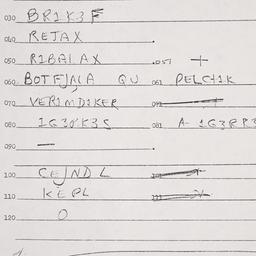 030 BR1K3F
040 RETAX
050 R1BALAX .051 +
060 BOTFJALA QU 061 PELCH1K
070 VER1MD1KER
080 1G30'K3S 081 A- 1G3RR3
090 —
100 CEJNDL
110 KEPL
120 O